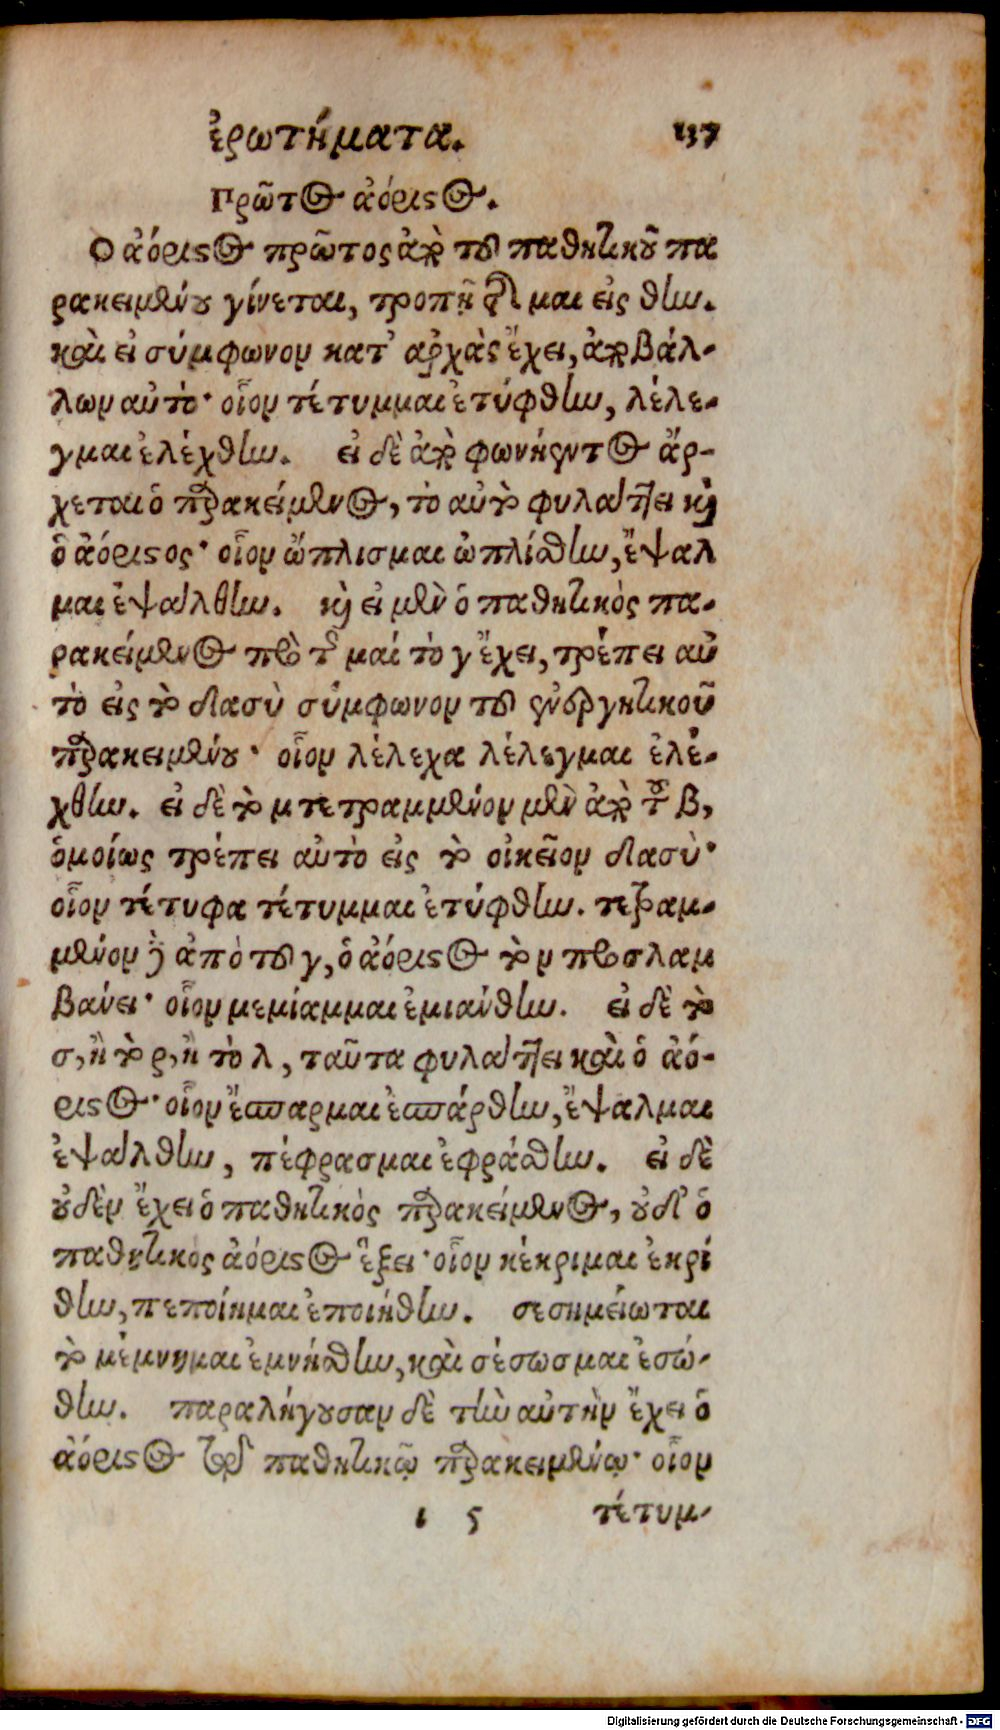 ἐρωτήματα. 137
Πρῶτος ἀόριστος.
Ο ἀόριστος πρῶτος ἀπὸ τοῦ παθητικοῦ πα
ρακειμένου γίνεται, τροπῇ τῆς μαι εἰς θην.
καὶ εἰ σύμφωνον κατ' ἀρχὰς ἔχει, ἀποβάλ-
λων αὐτό· οἷον τέτυμμαι ἐτύφθην, λέλε-
γμαι ἐλέχθην. εἰ δὲ ἀπὸ φωνήεντος ἄρ-
χεται ὁ παρακείμενος, τὸ αὐτὸ φυλάττει καὶ
ὁ ἀόριστος· οἷον ὥπλισμαι ὡπλίσθην, ἔψαλ
μαι ἐψάλθην. καὶ εἰ μὲν ὁ παθητικὸς πα-
ρακείμενος πρὸ τοῦ μαί τὸ γ ἔχει, τρέπει αὐ
τὸ εἰς τὸ δασὺ σύμφωνον τοῦ ἐνεργητικοῦ
παρακειμένου· οἷον λέλεχα λέλεγμαι ἐλέ-
χθην. εἰ δὲ τὸ μ τετραμμένον μὲν ἀπὸ τοῦ β,
ὁμοίως τρέπει αὐτὸ εἰς τὸ οἰκεῖον δασὺ·
οἷον τέτυφα τέτυμμαι ἐτύφθην. τετραμ-
μένον δὲ ἀπὸ τοῦ γ, ὁ ἀόριστος τὸ ν προσλαμ
βάνει· οἷον μεμίαμμαι ἐμιάνθην. εἰ δὲ τὸ
σ, ἢ τὸ ρ, ἢ τὸ λ, ταῦτα φυλάττει καὶ ὁ ἀό-
ριστος· οἷον ἔσπαρμαι ἐσπάρθην, ἔψαλμαι
ἐψάλθην, πέφρασμαι ἐφράσθην. εἰ δὲ
οὐδὲν ἔχει ὁ παθητικὸς παρακείμενος, οὐδ' ὁ
παθητικὸς ἀόριστος ἕξει· οἷον κέκριμαι ἐκρί
θην, πεποίημαι ἐποιήθην. σεσημείωται
τὸ μέμνημαι ἐμνήσθην, καὶ σέσωσμαι ἐσώ-
θην. παραλήγουσαν δὲ τὴν αὐτὴν ἔχει ὁ
ἀόριστος τῷ παθητικῷ παρακειμένῳ· οἷον
ι 5 τέτυμ-
Digitalisierung gefördert durch die Deutsche Forschungsgemeinschaft - DFG